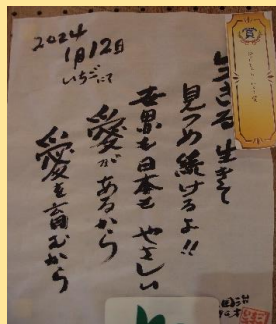 生きる 生きて
見つめ続けるよ!!
世界も日本も やさしい
愛があるから
愛を育むから
2024
1月12日
いちごにて
賞